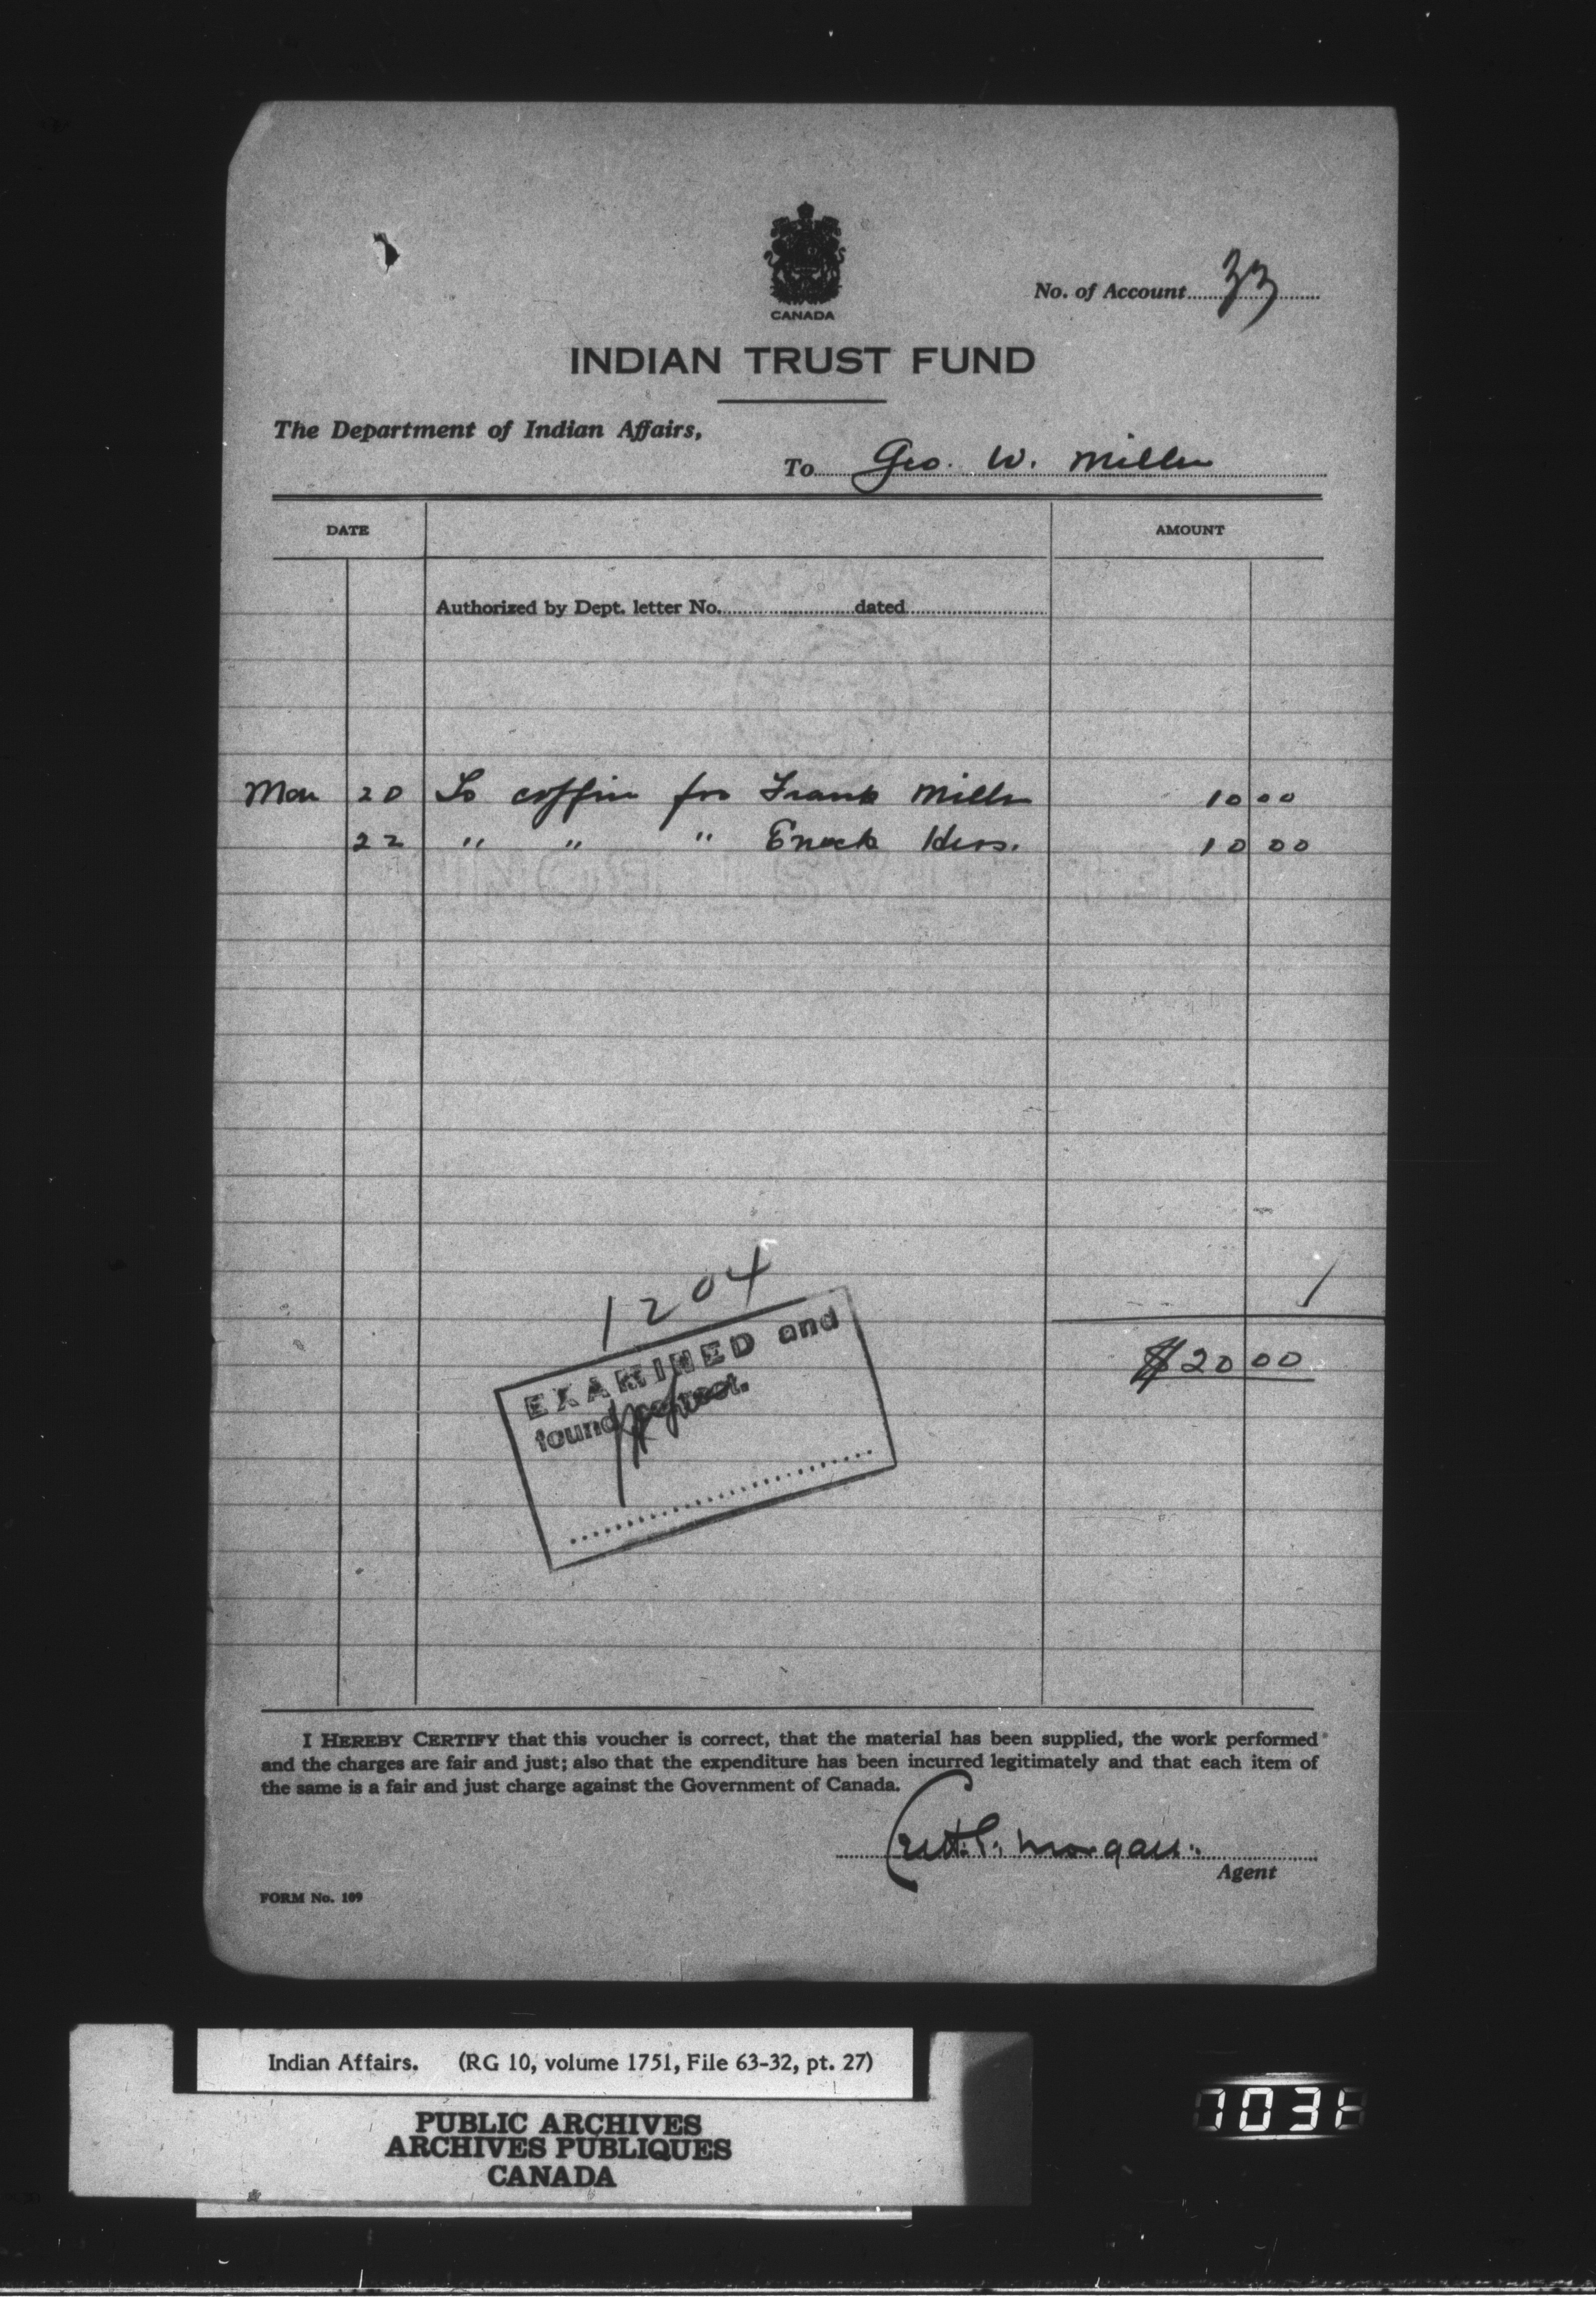 CANADA
No. of Account 33
INDIAN TRUST FUND
The Department of Indian Affairs,
To Geo. W. Miller
DATE AMOUNT
Authorized by Dept. letter No. dated
Mar 20 To coffin for Frank Miller 10 00
22 " " " Enock Hess. 10 00
1204
EXAMINED and
found correct.
$20 00
I HEREBY CERTIFY that this voucher is correct, that the material has been supplied, the work performed
and the charges are fair and just; also that the expenditure has been incurred legitimately and that each item of
the same is a fair and just charge against the Government of Canada.
Morgan.
Agent
FORM No. 109
Indian Affairs. (RG 10, volume 1751, File 63-32, pt. 27)
PUBLIC ARCHIVES
ARCHIVES PUBLIQUES
CANADA